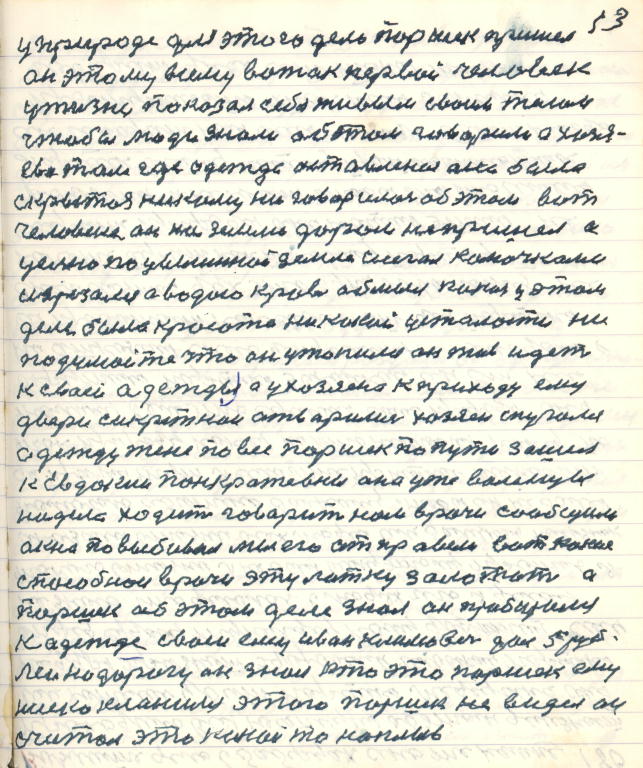 53
у природе для этого дело поршек пришел
он этому всему вотак первой человек
ужизне показал себя живым своим телом
чтобы люди знали абэтом говорили а хозя-
ева там где одежда оставлена ана была
скрытоя никому ни говорилос об этом вот
человека он на землю дорои не пришел а
цельно по целинной земле снегал комочками
изрезалса аводою кровь абмыл покой у этом
деле была красота никокой усталости ни
подумойте что он утопился он жив идет
к своей адежды а ухозяена к приходу ему
двери сикретнои атварились хозяен спугалса
адежду жене повес поршек попути зашел
к Евдокии Панкратевны она уже валенцых
надела ходит говорит нам врачи сообщили
окна повыбивал мы его отправели вот какие
способнои врачи эту латку залотат а
Поршек об этом деле знал он пробирался
к адежде своеи ему иван климович дал 5 руб.
Лен надорогу он знал кто это поршек ему
ниско кланился этого поршек не видел он
считал это какой то наплыв